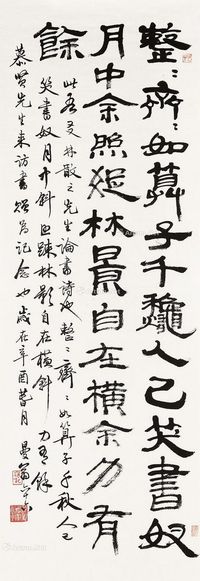 整〻齊〻如筭子千龝人已笑書奴
月中余照疏林景自在橫余力有
餘
此吾友林散之先生論書詩也整〻齊〻如算子千秋人已
笑書奴月升斜照疎林影自在橫斜力有餘
慕賢先生來訪書為記念也歲在辛酉暮月